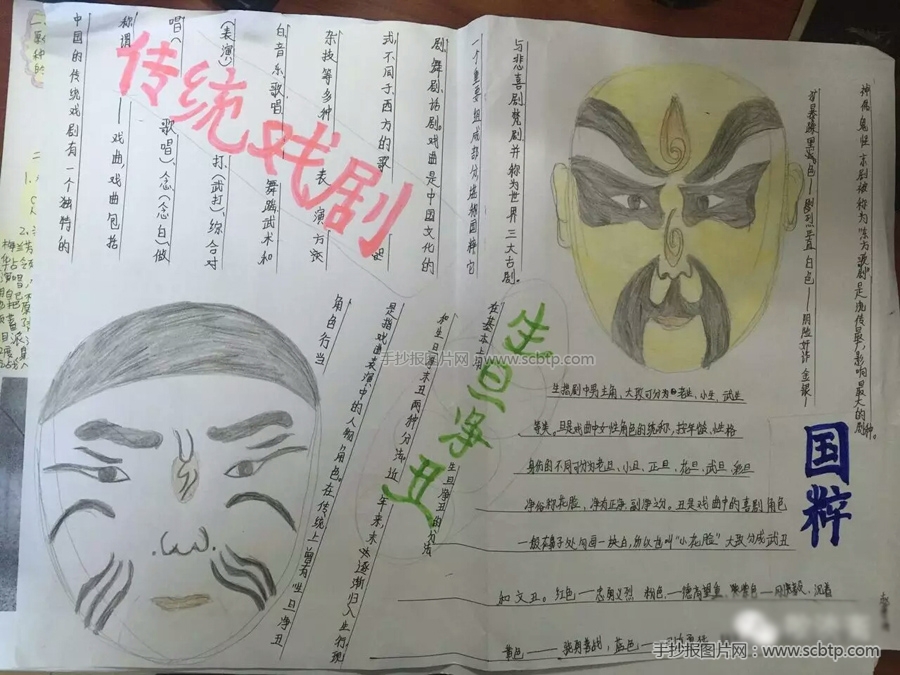 传统戏剧
中国的传统戏剧有一个独特的
称谓——戏曲,戏曲包括
唱(歌唱)、念(念白)、做
(表演)打(武打),综合对
白、音乐、歌唱、舞蹈、武术和
杂技等多种表演方
式,不同于西方的歌
剧、舞剧、话剧。戏曲是中国文化的
一个重要组成部分,堪称国粹,它
与悲喜剧、梵剧并称为世界三大古剧。
生旦净丑
角色行当
是指戏曲表演中的人物角色。在传统上曾有“生旦净丑
和生旦净末丑两种分法,近年来
在基本上
生旦净丑的分法
生:戏剧中男主角,大致可分为老生、小生、武生
等类。旦是戏曲中女性角色的统称,按年龄、性格
身份的不同可分为老旦、小旦、正旦、花旦、武旦
净俗称花脸,净有正净、副净之别。丑是戏曲中的喜剧角色
一般在鼻子处勾画一块白,所以也叫“小花脸”大致分成武丑
和文丑。红色——忠勇义烈 粉色——德高望重
黄色——骁勇善战,蓝色——
国粹
白色——阴险奸诈 金银—
神佛、鬼怪 京剧被称为“东方歌剧”是流传最广,影响最大的剧种。
梅兰芳
手抄报图片网 - www.scbtp.com
手抄报图片网:www.scbtp.com